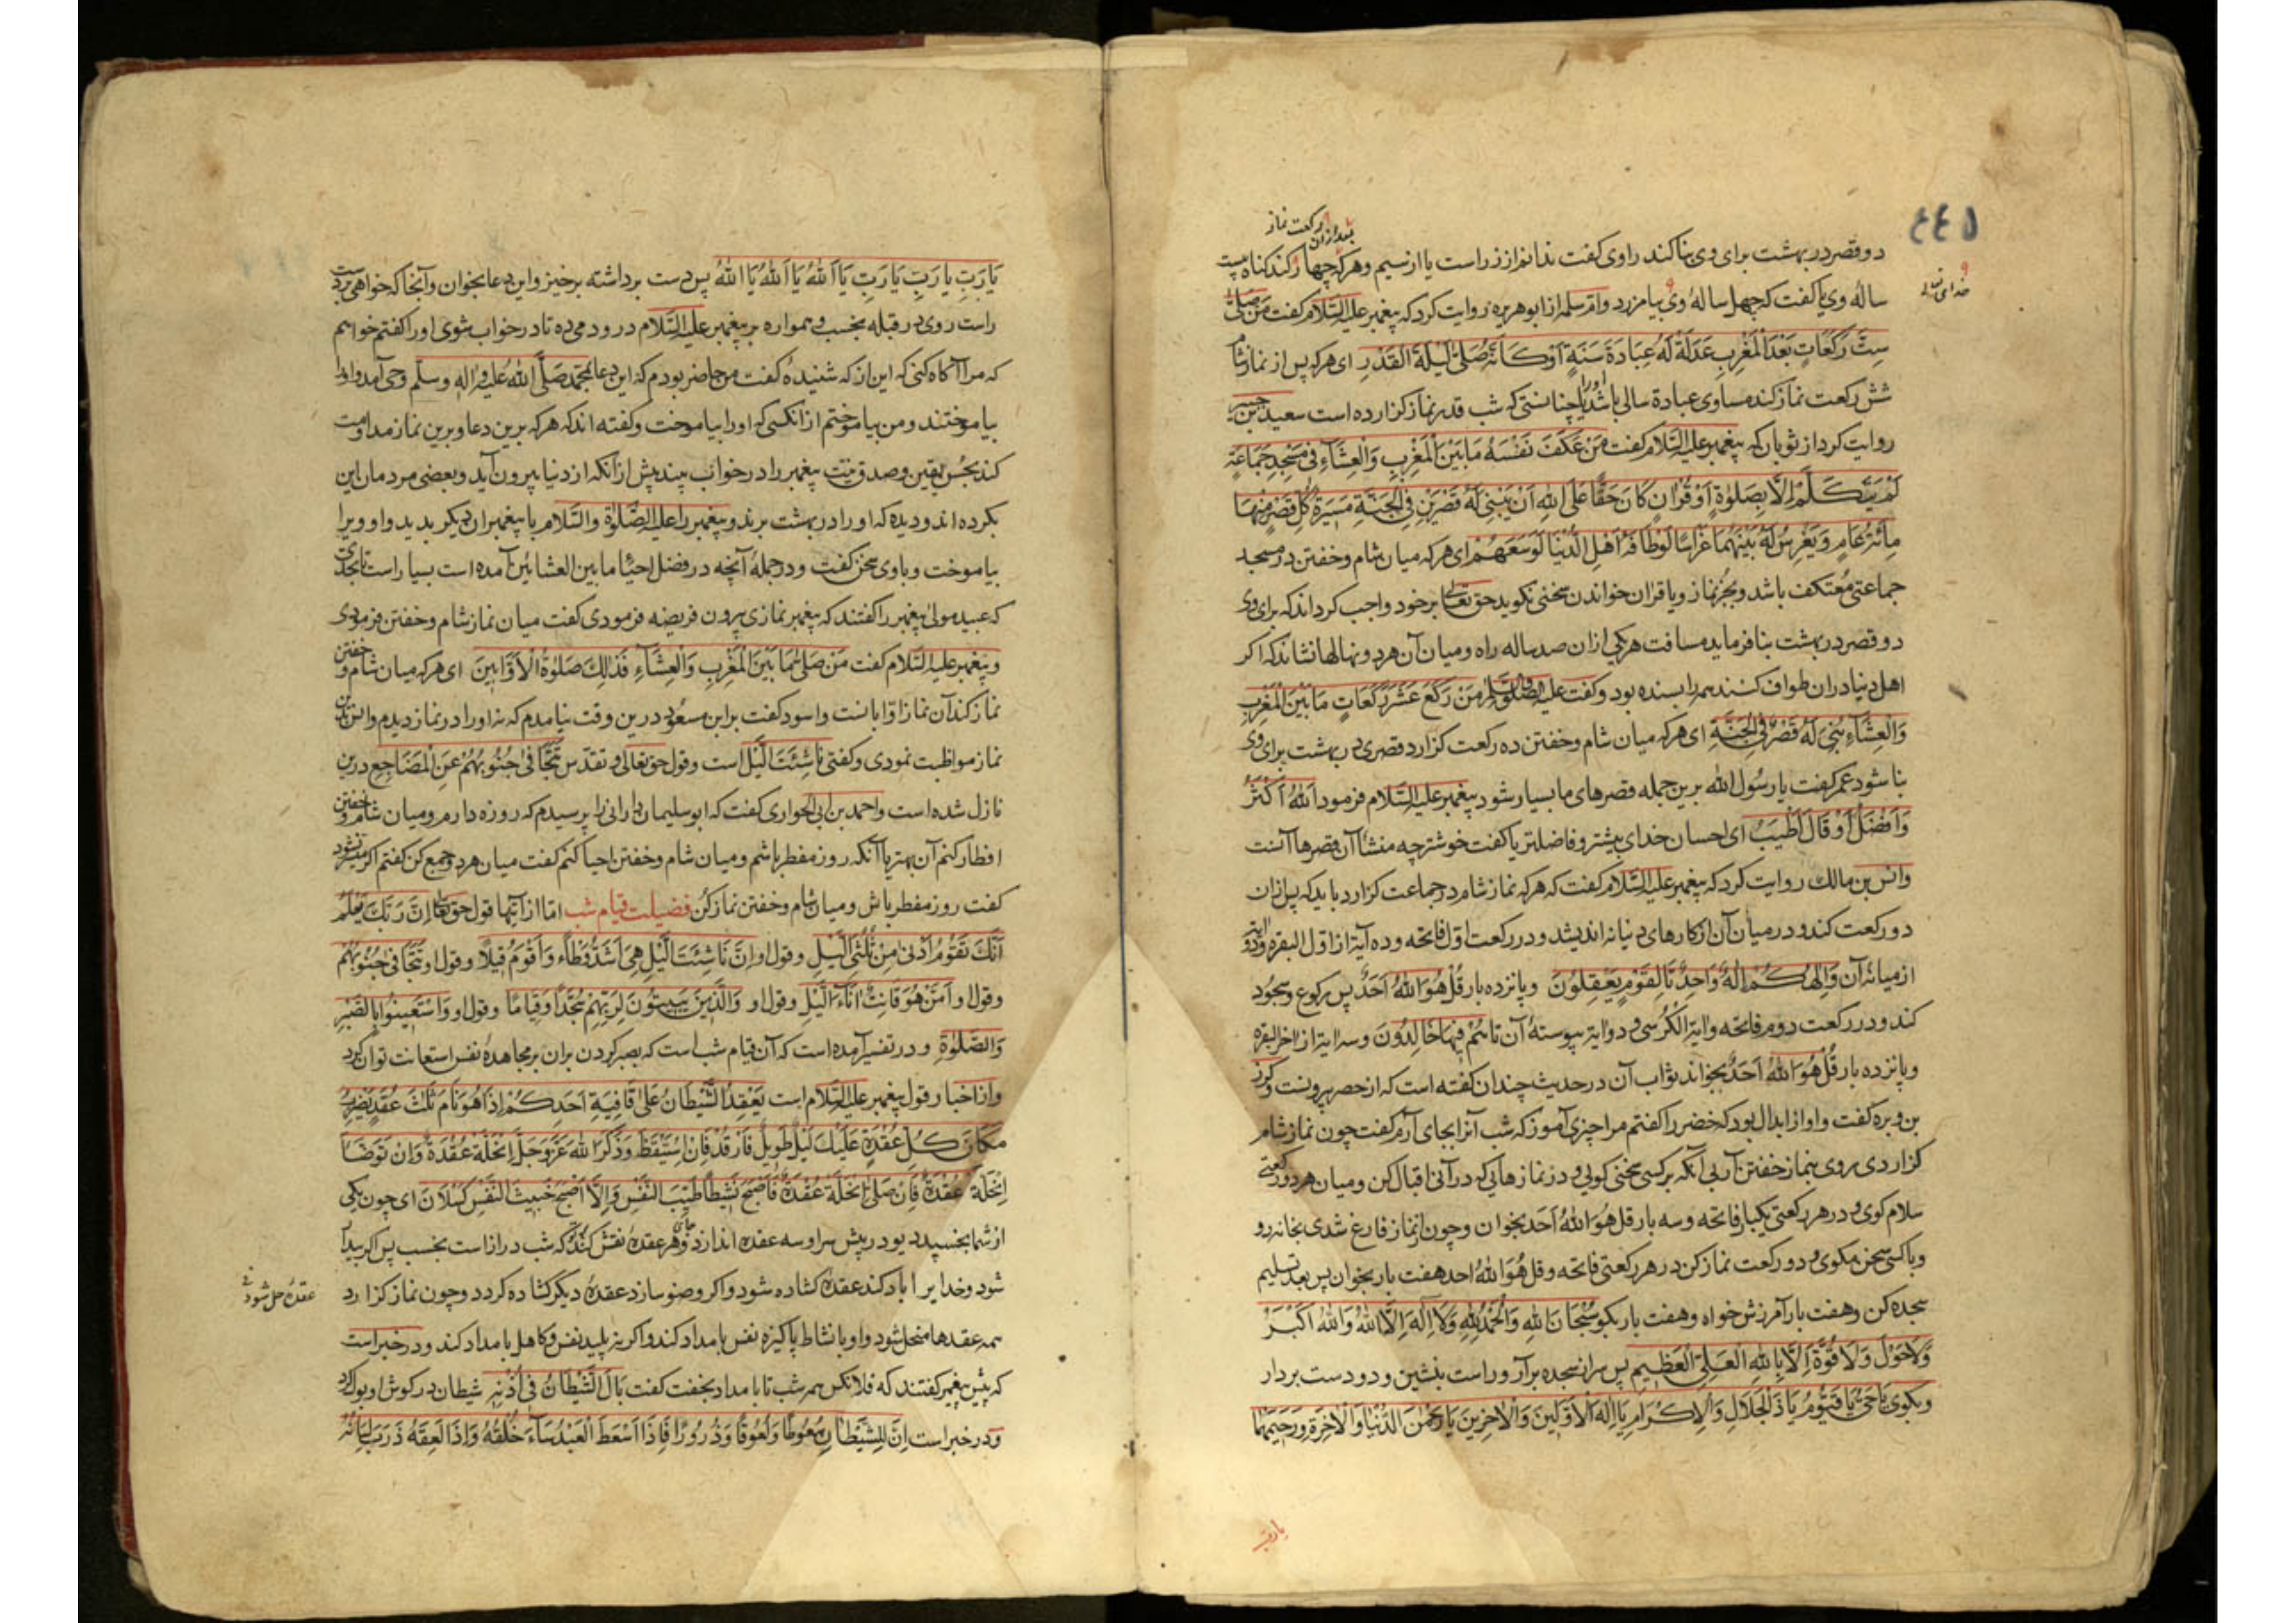 ٤٤٥
بعد ازان رکعت نماز
دو قصر در بهشت برای وی بنا کند راوی کفت ندانم از زر است یا از سیم وهرکه چهار کند کناه بیست
خدای تعالی
ساله وی یا کفت که چهل ساله وی بیامرزد وام سلمه از ابو هریره روایت کرد که پیغمبر علیه السّلام کفت مَن صَلّیٰ
سِتَّ رَکَعَاتٍ بَعْدَ الْمَغْرِبِ عَدَلَةْ لَهُ عِبَادَةَ سَنَةٍ اَوْ کَاَنَّهُ صَلّیٰ لَیْلَةَ الْقَدْرِ ای هرکه پس از نماز شام
شش رکعت نماز کند مساوی عبادة سالی باشد او را یا چنانستی که شب قدر نماز کزارده است سعید جبیر
روایت کرد از ثوبان که پیغمبر علیه السّلام کفت مَنْ عَکَفَ نَفْسَهُ مَا بَیْنَ الْمَغْرِبِ وَالْعِشَآءِ فیٖ مَسْجِدِ جَمَاعَةٍ
لَمْ یَتَکَلَّمْ اِلَّا بِصَلوٰةٍ اَوْ قُرْاٰنٍ کَانَ حَقًّا عَلَی اللهِ اَنْ یَبْنِیَ لَهُ قَصْرَیْنِ فِی الْجَنَّةِ مَسِیْرَةُ کُلِّ قَصْرٍ مِنْهَا
مِائَةُ عَامٍ وَیَغْرِسُ لَهُ بَیْنَهُمَا غِرَاسًا لَوْ طَافَهُ اَهْلُ الدُّنْیَا لَوَسَعَهُمْ ای هرکه میان شام وخفتن در مسجد
جماعتی مُعتکف باشد وبجُز نماز ویا قران خواندن سخنی نکوید حق تعالیٰ بر خود واجب کرداند که برای وی
دو قصر در بهشت بنا فرماید مسافت هر یکی ازان صد ساله راه ومیان آن هر دو نهالها نشاند که اکر
اهل دنیا دران طواف کنند همه را بسنده بود وکفت علیه الصّلوٰة والسّلام مَنْ رَکَعَ عَشْرَ رَکَعَاتٍ مَا بَیْنَ الْمَغْرِبِ
وَالْعِشَآءِ بُنِیَ لَهُ قَصْرٌ فِی الْجَنَّةِ ای هرکه میان شام وخفتن ده رکعت کزارد قصری در بهشت برای وی
بنا شود عمر کفت یا رسُول اللّٰه برین جمله قصرهای ما بسیار شود پیغمبر علیه السّلام فرمود اَللّٰهُ اَکْثَرُ
وَاَفْضَلُ اَوْ قَالَ اَطْیَبُ ای احسان خدای بیشتر وفاضلتر یا کفت خوشتر چه منشأ آن قصرها آنست
وانس بن مالك روایت کرد که پیغمبر علیه السّلام کفت که هرکه نماز شام در جماعت کزارد باید که پس ازان
دو رکعت کند ودر میان آن از کارهای دنیا نه اندیشد ودر رکعت اوّل فاتحه وده آیة از اول البقره ودو آیة
از میانۀ آن وَاِلٰهُکُمْ اِلٰهٌ وَاحِدٌ تا لِقَوْمٍ یَعْقِلُوْنَ وپانزده بار قُلْ هُوَ اللهُ اَحَدٌ پس رکوع وسجُود
کند ودر رکعت دوم فاتحه وایة الکُرسی ودو ایة پیوستۀ آن تا هُمْ فِیْهَا خَالِدُوْنَ وسه ایة از اخر البقره
وپانزده بار قُلْ هُوَ اللهُ اَحَدٌ بخواند ثواب آن در حدیث چندان کفته است که از حصر بیرونست وکرز
بن وبره کفت واو از ابدال بود که خضر را کفتم مرا چیزی آموز که شب آنرا بجای آرم کفت چون نماز شام
کزاردی می روی بنماز خفتن آر بی آنکه بر کسی سخنی کویی ودر نمازهایی که درآنی اقبال کن ومیان هر دو رکعتی
سلام کوی ودر هر رکعتی یکبار فاتحه وسه بار قل هُوَ اللهُ اَحَد بخوان وچون از نماز فارغ شدی بخانه رو
وبا کسی سخن مکوی ودو رکعت نماز کن در هر رکعتی فاتحه وقل هُوَ اللهُ احد هفت بار بخوان پس بعد تسلیم
سجده کن وهفت بار آمرزش خواه وهفت بار بکو سُبْحَانَ اللهِ وَالْحَمْدُ لِلّٰهِ وَلَا اِلٰهَ اِلَّا اللهُ وَاللهُ اَکْبَرُ
وَلَا حَوْلَ وَلَا قُوَّةَ اِلَّا بِاللهِ الْعَلِیِّ الْعَظِیْمِ پس سر از سجده برآر وراست بنشین ودو دست بردار
وبکوی یَا حَیُّ یَا قَیُّوْمُ یَا ذَا الْجَلَالِ وَالْاِکْرَامِ یَا اِلٰهَ الْاَوَّلِیْنَ وَالْاٰخِرِیْنَ یَا رَحْمٰنَ الدُّنْیَا وَالْاٰخِرَةِ وَرَحِیْمَهُمَا
یا رب
یَا رَبِّ یَا رَبِّ یَا رَبِّ یَا اَللهُ یَا اَللهُ یَا اَللهُ پس دست برداشته برخیز واین دعا بخوان وآنجا که خواهی بر دست
راست روی در قبله بخسب وهمواره بر پیغمبر علیه السّلام درود می ده تا در خواب شوی اورا کفتم خواهم
که مرا آکاه کنی که این از که شنیدۀ کفت من حاضر بودم که این دعا بمحمّد صَلَّی اللهُ عَلیه واٰلهٖ وسلّم وحی آمد واورا
بیاموختند ومن بیاموختم از انکسی که اورا بیاموخت وکفته اند که هرکه برین دعا وبرین نماز مداومت
کند بحُسن یقین وصدق نیّت پیغمبر را در خواب بیند پیش از انکه از دنیا بیرون آید وبعضی مردمان این
بکرده اند ودیده که اورا در بهشت برند وپیغمبر را علیه الصَّلٰوة والسّلام با پیغمبران دیکر بدید واو ویرا
بیاموخت وباوی سخن کفت ودر جملۀ آنچه در فضل احیٔا ما بین العشائین آمده است بسیار است تا بحدی
که عبید مولیٰ پیغمبر را کفتند که پیغمبر نمازی بیرون فریضه فرمودی کفت میان نماز شام وخفتن فرمودی
وپیغمبر علیه السّلام کفت مَنْ صَلّیٰ مَا بَیْنَ الْمَغْرِبِ وَالْعِشَآءِ فَذٰلِكَ صَلٰوةُ الْاَوَّابِیْنَ ای هرکه میان شام وخفتن
نماز کند آن نماز اوّابانست واسود کفت بر ابن مسعُود درین وقت نیامدم که نه اورا در نماز دیدم وانس برین
نماز مواظبت نمودی وکفتی نَاشِئَتَ اللَّیْلِ است وقول حق تعالیٰ وتقدّس تَتَجَافیٰ جُنُوْبُهُمْ عَنِ الْمَضَاجِعِ درین
نازل شده است واحمد بن ابی الحواری کفت که ابو سلیمان دارانی را پرسیدم که روزه دارم ومیان شام وخفتن
افطار کنم آن بهتر یا آنکه روز مفطر باشم ومیان شام وخفتن احیا کنم کفت میان هر دو جمع کن کفتم اکر میسر نشود
کفت روز مفطر باش ومیان شام وخفتن نماز کن فضیلت قیام شب امّا از آیتها قول حق تعالیٰ اِنَّ رَبَّكَ یَعْلَمُ
اَنَّكَ تَقُوْمُ اَدْنیٰ مِنْ ثُلُثَیِ الَّیْلِ وقول او اِنَّ نَاشِئَتَ الَّیْلِ هِیَ اَشَدُّ وَطْأً وَاَقْوَمُ قِیْلًا وقول او تَتَجَافیٰ جُنُوْبُهُمْ
وقول او اَمَّنْ هُوَ قَانِتٌ اٰنَآءَ الَّیْلِ وقول او وَالَّذِیْنَ یَبِیْتُوْنَ لِرَبِّهِمْ سُجَّدًا وَقِیَامًا وقول او وَاسْتَعِیْنُوْا بِالصَّبْرِ
وَالصَّلٰوةِ ودر تفسیر آمده است که آن قیام شب است که بصبر کردن بران بر مجاهدۀ نفس استعانت توان کرد
واز اخبار قول پیغمبر علیه السّلام است یَعْقِدُ الشَّیْطَانُ عَلیٰ قَافِیَةِ اَحَدِکُمْ اِذَا هُوَ نَامَ ثَلٰثَ عُقَدٍ یَضْرِبُ
مَکَانَ کُلِّ عُقْدَةٍ عَلَیْكَ لَیْلٌ طَوِیْلٌ فَارْقُدْ فَاِنْ اِسْتَیْقَظَ وَذَکَرَ اللهَ عَزَّ وَجَلَّ اِنْحَلَّةْ عُقْدَةٌ وَاِنْ تَوَضَّأَ
اِنْحَلَّةْ عُقْدَةٌ فَاِنْ صَلّیٰ اِنْحَلَّةْ عُقْدَةٌ فَاَصْبَحَ نَشِیْطًا طَیِّبَ النَّفْسِ وَاِلَّا اَصْبَحَ خَبِیْثَ النَّفْسِ کَسْلَانَ ای چون یکی
از شما بخسپد دیو در پیش سر او سه عقده اندازد وبر جای هر عقده نقش کند که شب دراز است بخسب پس اکر بیدار
شود وخدایرا یاد کند عقدۀ کشاده شود واکر وضو سازد عقدۀ دیکر کشاده کردد وچون نماز کزارد
عقدۀ حل شود
همه عقدها منحل شود واو با نشاط پاکیزه نفس بامداد کند واکر نه پلید نفس وکاهل بامداد کند ودر خبر است
که پیش پیغمبر کفتند که فلانکس همه شب تا بامداد بخفت کفت بَالَ الشَّیْطَانُ فیٖ اُذُنِهٖ شیطان در کوش او بول کرد
ودر خبر است اِنَّ لِلشَّیْطَانِ سَعُوْطًا وَلَعُوْقًا وَذَرُوْرًا فَاِذَا اَسْعَطَ الْعَبْدَ سَآءَ خُلُقُهُ وَاِذَا لَعِقَهُ ذَرَبَ لِسَانُهُ